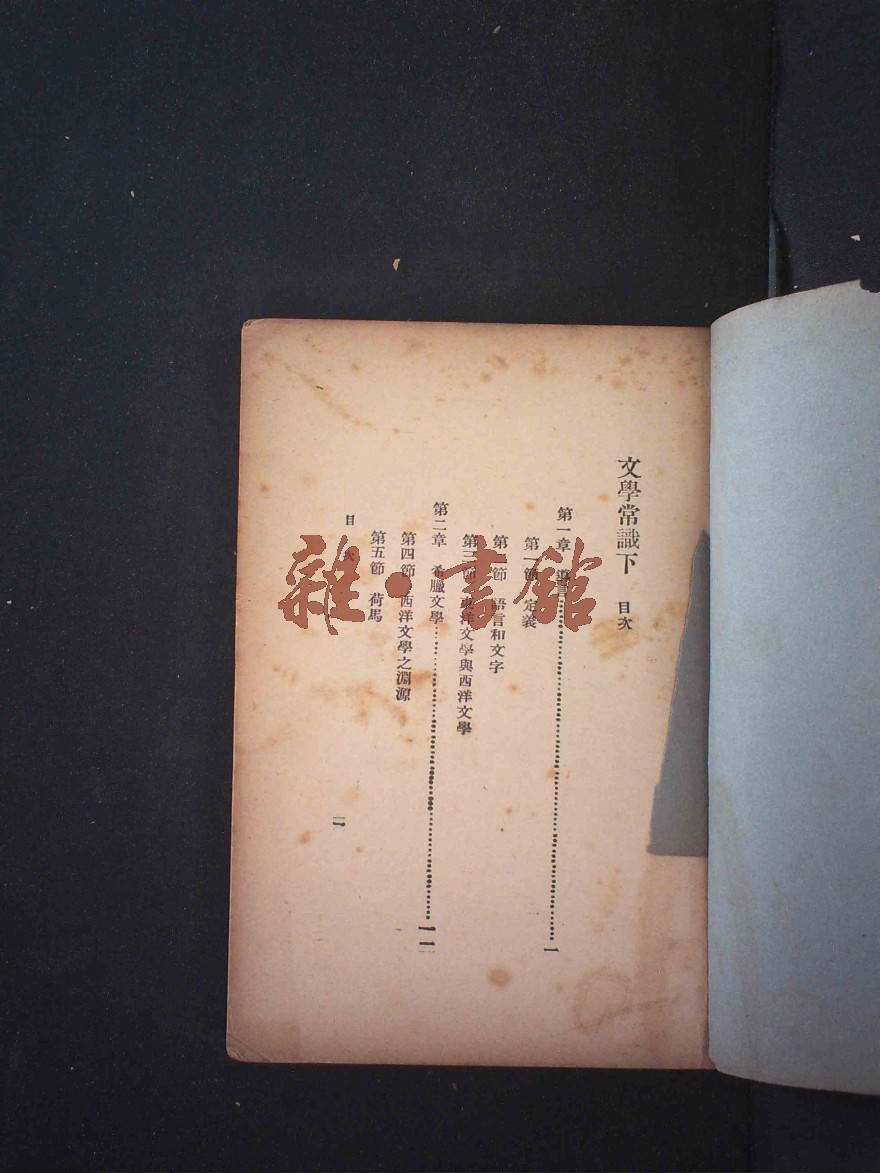 文學常識下 目次
第一章 導言⋯⋯⋯⋯⋯⋯⋯⋯⋯⋯⋯⋯一
第一節 定義
第二節 語言和文字
第三節 東洋文學與西洋文學
第二章 希臘文學⋯⋯⋯⋯⋯⋯⋯⋯⋯⋯⋯⋯一二
第四節 西洋文學之淵源
第五節 荷馬
目次
雜·書館